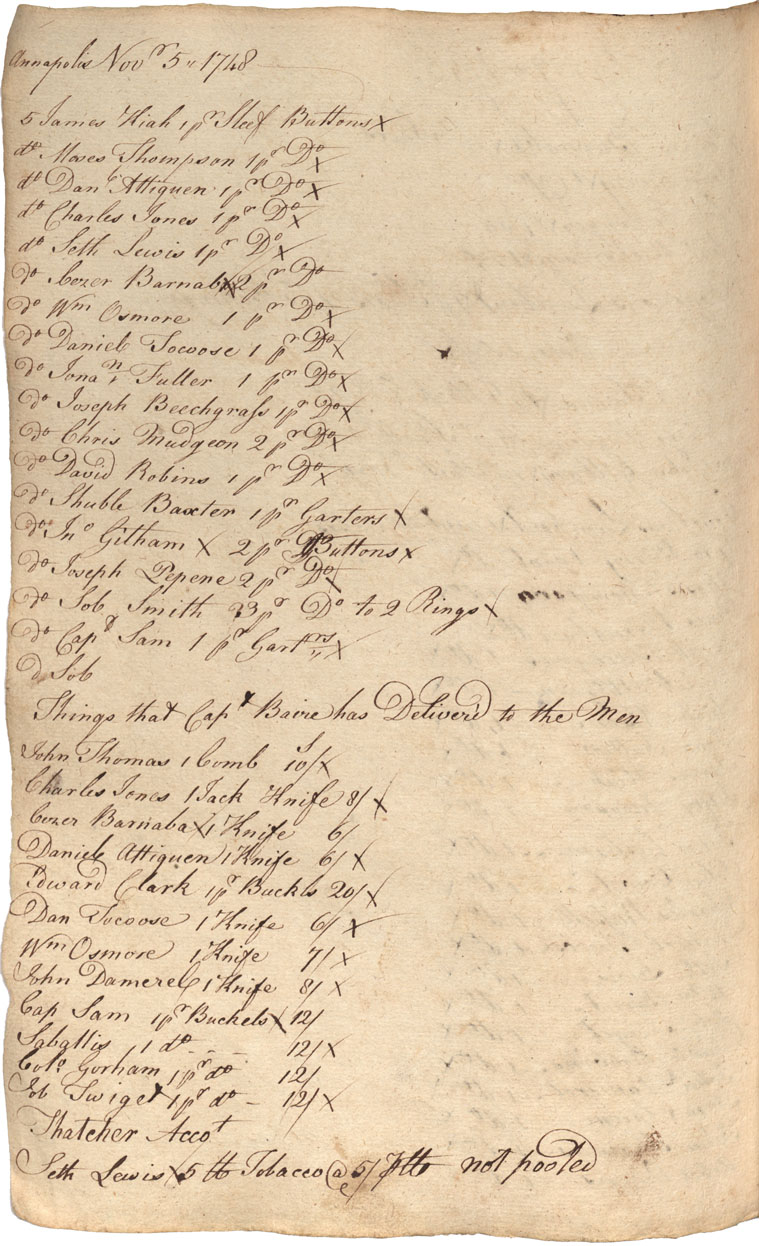 Annapolis Novr 5 " 1748
5 James Hiah 1 pr Sleef Buttons X
do Moses Thompson 1 pr Do X
do Danl Attiquen 1 pr Do X
do Charles Jones 1 pr Do X
do Seth Lewis 1 pr Do X
do Cozer Barnaba X 2 pr Do
do Wm Osmore 1 pr Do X
do Daniel Tocoose 1 pr Do X
do Jonan Fuller 1 pr Do X
do Joseph Beechgrass 1 pr Do X
do Chris Mudgeon 2 pr Do X
do David Robins 1 pr Do X
do Shuble Baxter 1 pr Garters X
do Jno Githam X 2 pr Buttons X
do Joseph Pepene 2 pr Do X
do Job Smith 3 pr Do to 2 Rings X
do Capt Sam 1 pr Gartrs X
d Job
Things that Capt Baire has Deliver'd to the Men
John Thomas 1 Comb 10/ X
Charles Jones 1 Jack Knife 8/ X
Cozer Barnaba X 1 Knife 6/
Daniel Attiquen 1 Knife 6/ X
Edward Clark 1 pr Buckls 20/ X
Dan Tocoose 1 Knife 6/ X
Wm Osmore 1 Knife 7/ X
John Damerel 1 Knife 8/ X
Cap Sam 1 pr Buckels X 12/
Saballis 1 do - - - 12/ X
Colo Gorham 1 pr do 12/
Job Twiget 1 pr do - 12/ X
Thatcher Accot
Seth Lewis X 5 lb Tobacco @ 5/ lb not posted